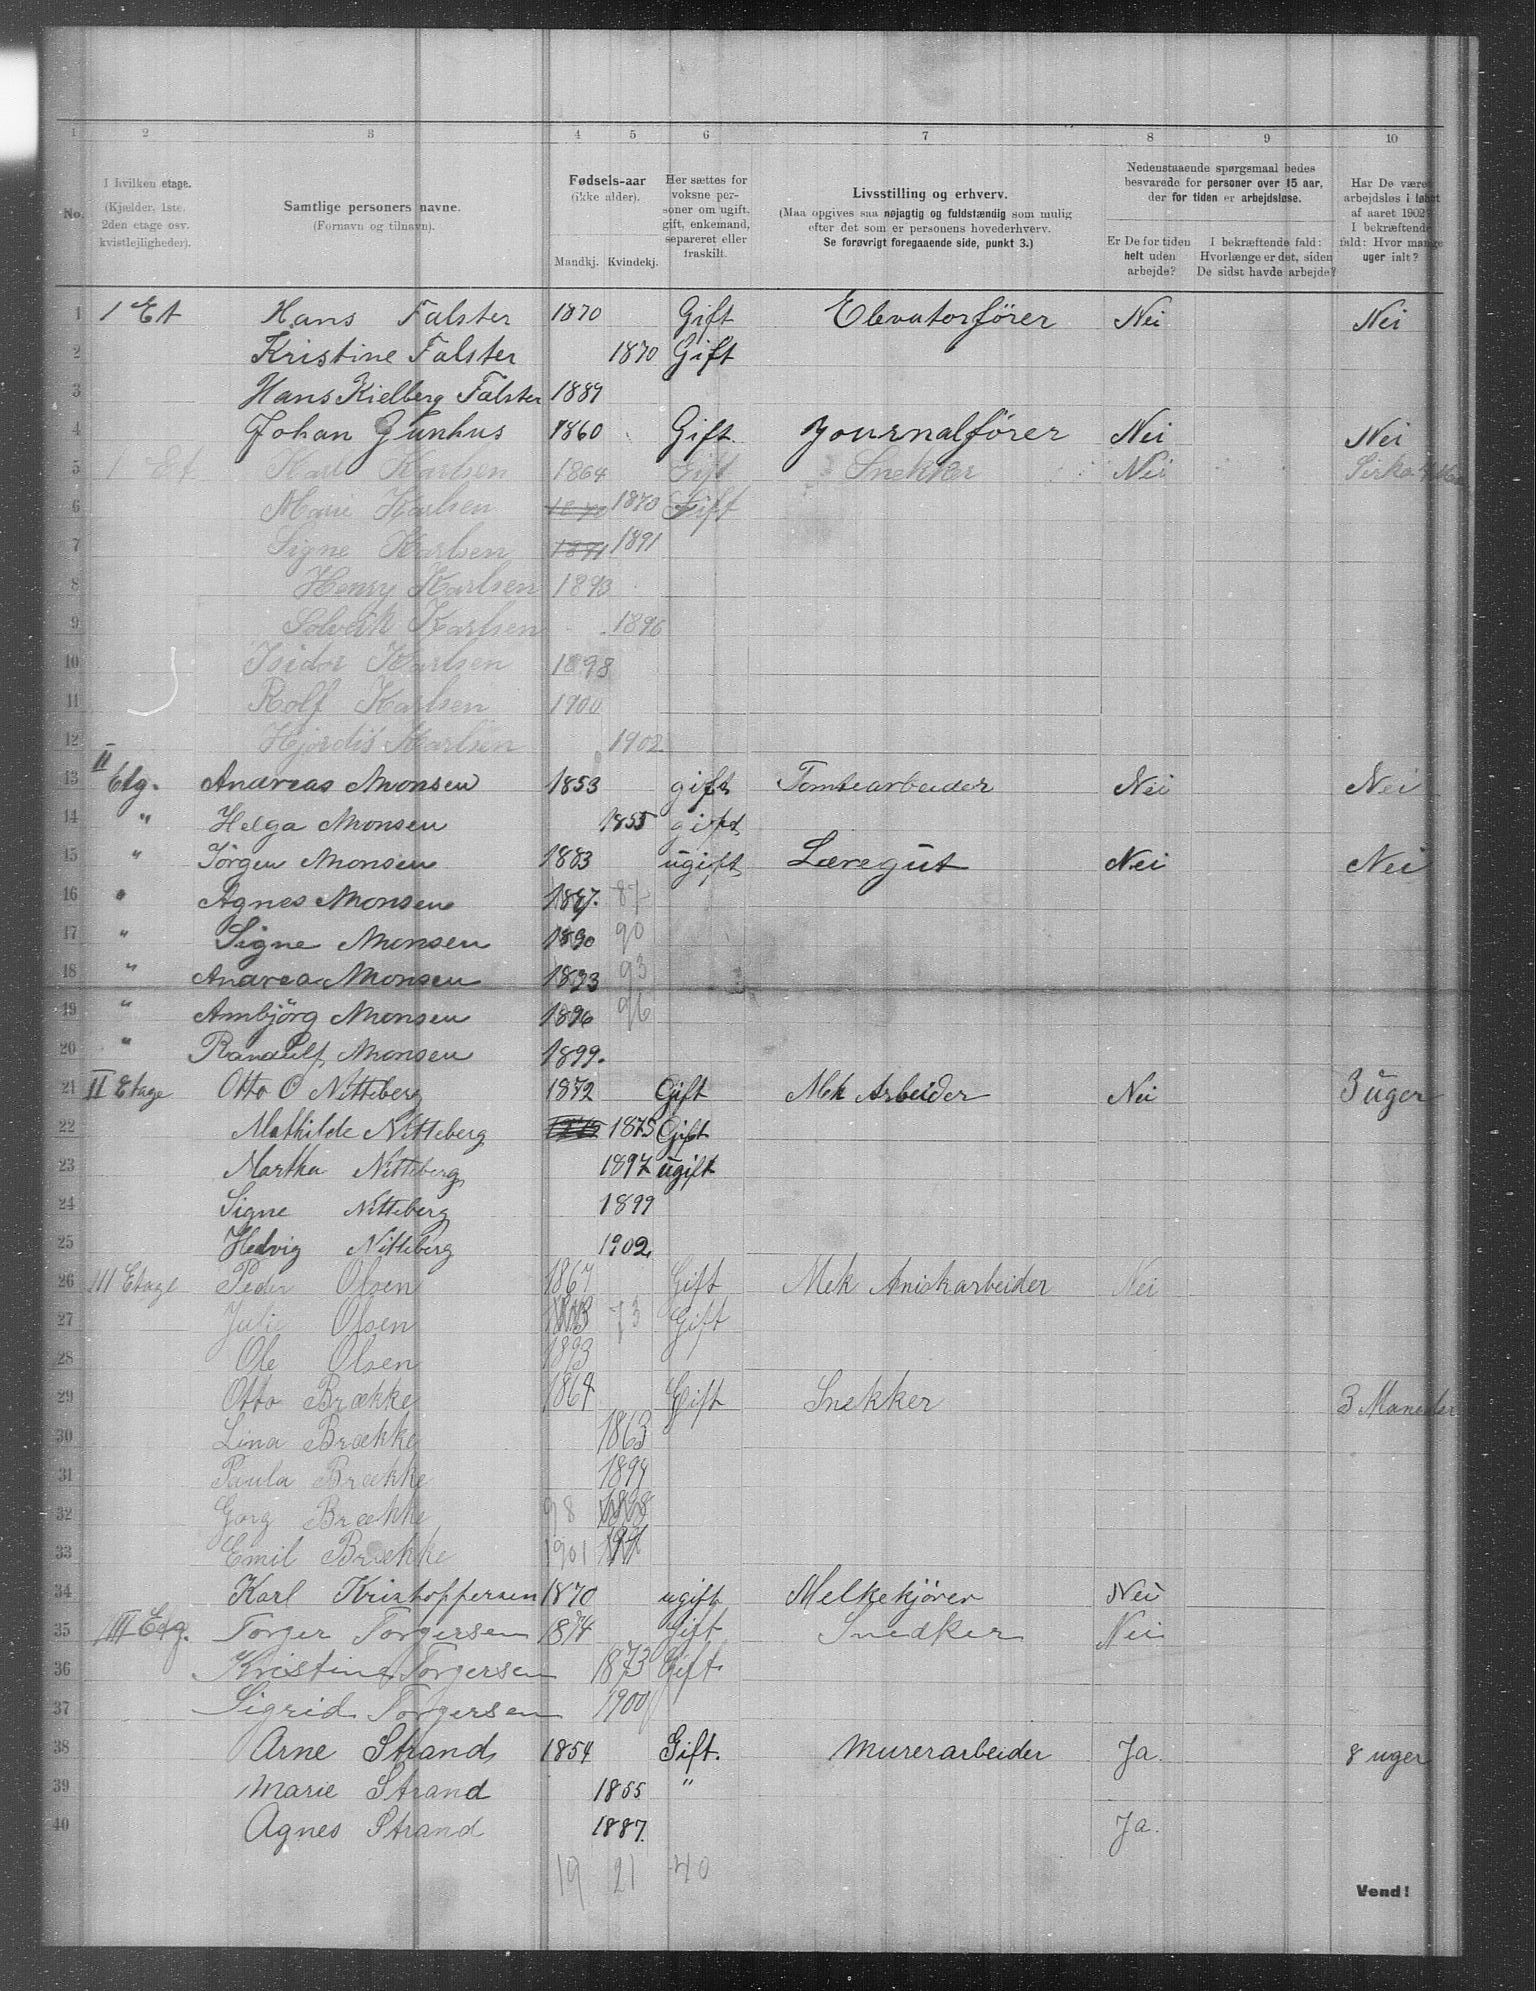 1 2 3 4 5 6 7 8 9 10
No.
I hvilken etage.
(Kjælder, 1ste, 2den etage osv. kvistlejligheder).
Samtlige personers navne.
(Fornavn og tilnavn).
Fødsels-aar
(ikke alder).
Mandkj. Kvindekj.
Her sættes for voksne personer om ugift, gift, enkemand, separeret eller fraskilt.
Livsstilling og erhverv.
(Maa opgives saa nøjagtig og fuldstændig som mulig
efter det som er personens hovederhverv.
Se forøvrigt foregaaende side, punkt 3.)
Nedenstaaende spørgsmaal bedes
besvarede for personer over 15 aar,
der for tiden er arbejdsløse.
Er De for tiden helt uden arbejde?
I bekræftende fald: Hvorlænge er det, siden De sidst havde arbejde?
Har De være arbejdsløs i løbet af aaret 1902? I bekræftende fald: Hvor mange uger ialt?
1 1 Et Hans Falster 1870 Gift Elevatorfører Nei Nei
2 Kristine Falster 1870 Gift
3 Hans Kielberg Falster 1889
4 Johan Gunhus 1860 Gift. Journalfører Nei Nei
5 1 Et Karl Karlsen 1864 Gift Snekker Nei Sirka
6 Marie Karlsen 1870 1870 Gift
7 Signe Karlsen 1891 1891
8 Henry Karlsen 1893
9 Solveik Karlsen 1896
10 Isidor Karlsen 1898
11 Rolf Karlsen 1900
12 Hjørdis Karlsen 1902
13 II Etg. Andreas Monsen 1853 gift Tomtearbeider Nei Nei
14 " Helga Monsen 1855 gift
15 " Jörgen Monsen 1883 ugift Læregut Nei Nei
16 " Agnes Monsen 1887. 87
17 " Signe Monsen 1890 90
18 " Andrea Monsen 1893 93
19 " Arnbjörg Monsen 1896 96
20 " Randulf Monsen 1899.
21 II Etage Otto O Nitteberg 1872 Gift Mek Arbeider Nei 3 uger
22 Mathilde Nitteberg 1875 Gift
23 Martha Nitteberg 1897 ugift
24 Signe Nitteberg 1899
25 Hedvig Nitteberg 1902
26 III Etage Peder Olsen 1867 Gift Mek Aniskarbeider Nei
27 Julie Olsen 1873 73 Gift
28 Ole Olsen 1893
29 Otto Brække 1864 Gift Snekker 3 Maneder
30 Lina Brække 1863
31 Paula Brække 1894
32 Gorg Brække 98 1898
33 Emil Brække 1901
34 Karl Kristoffersen 1870 ugift Melkekjörer Nei
35 III Etg. Torger Torgersen 1874 Gift Snedker Nei
36 Kristine Torgersen 1873 Gift
37 Sigrid Torgersen 1900
38 Arne Strand 1854 Gift. Murerarbeider Ja. 8 uger
39 Marie Strand 1855 "
40 Agnes Strand 1887. Ja.
19 21 40
Vend!